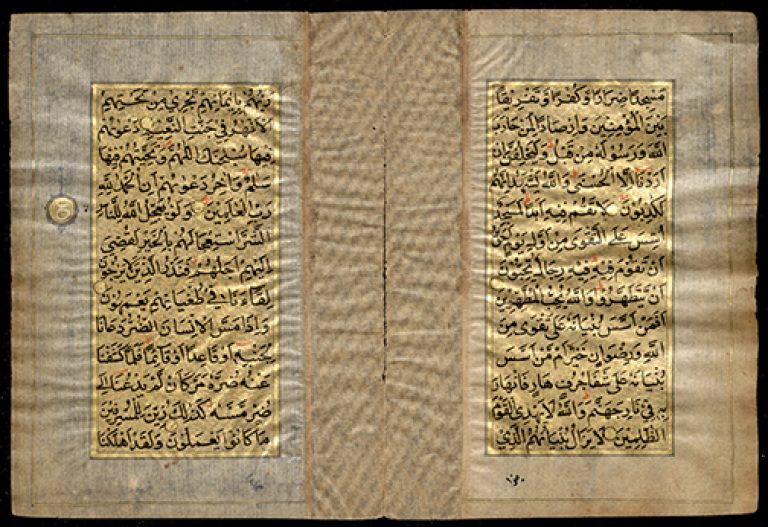 مَسْجِدًا ضِرَارًا وَكُفْرًا وَتَفْرِيقًا
بَيْنَ الْمُؤْمِنِينَ وَإِرْصَادًا لِمَنْ حَارَبَ
اللَّهَ وَرَسُولَهُ مِنْ قَبْلُ وَلَيَحْلِفُنَّ إِنْ
أَرَدْنَا إِلَّا الْحُسْنَى وَاللَّهُ يَشْهَدُ إِنَّهُمْ
لَكٰذِبُونَ لَا تَقُمْ فِيهِ أَبَدًا لَمَسْجِدٌ
أُسِّسَ عَلَى التَّقْوَى مِنْ أَوَّلِ يَوْمٍ أَحَقُّ
أَنْ تَقُومَ فِيهِ فِيهِ رِجَالٌ يُحِبُّونَ
أَنْ يَتَطَهَّرُوا وَاللَّهُ يُحِبُّ الْمُطَّهِّرِينَ
أَفَمَنْ أَسَّسَ بُنْيَانَهُ عَلَى تَقْوَى مِنَ
اللَّهِ وَرِضْوَانٍ خَيْرٌ أَمْ مَنْ أَسَّسَ
بُنْيَانَهُ عَلَى شَفَا جُرُفٍ هَارٍ فَانْهَارَ
بِهِ فِي نَارِ جَهَنَّمَ وَاللَّهُ لَا يَهْدِي الْقَوْمَ
الظّٰلِمِينَ لَا يَزَالُ بُنْيَانُهُمُ الَّذِي
رَبُّهُمْ بِإِيمَانِهِمْ تَجْرِي مِنْ تَحْتِهِمُ
الْأَنْهٰرُ فِي جَنّٰتِ النَّعِيمِ دَعْوٰهُمْ
فِيهَا سُبْحٰنَكَ اللَّهُمَّ وَتَحِيَّتُهُمْ فِيهَا
سَلٰمٌ وَآخِرُ دَعْوٰهُمْ أَنِ الْحَمْدُ لِلَّهِ
رَبِّ الْعٰلَمِينَ وَلَوْ يُعَجِّلُ اللَّهُ لِلنَّاسِ
الشَّرَّ اسْتِعْجَالَهُمْ بِالْخَيْرِ لَقُضِيَ
إِلَيْهِمْ أَجَلُهُمْ فَنَذَرُ الَّذِينَ لَا يَرْجُونَ
لِقَاءَنَا فِي طُغْيَانِهِمْ يَعْمَهُونَ
وَإِذَا مَسَّ الْإِنْسَانَ الضُّرُّ دَعَانَا
لِجَنْبِهِ أَوْ قَاعِدًا أَوْ قَائِمًا فَلَمَّا كَشَفْنَا
عَنْهُ ضُرَّهُ مَرَّ كَأَنْ لَمْ يَدْعُنَا إِلَى
ضُرٍّ مَسَّهُ كَذٰلِكَ زُيِّنَ لِلْمُسْرِفِينَ
مَا كَانُوا يَعْمَلُونَ وَلَقَدْ أَهْلَكْنَا